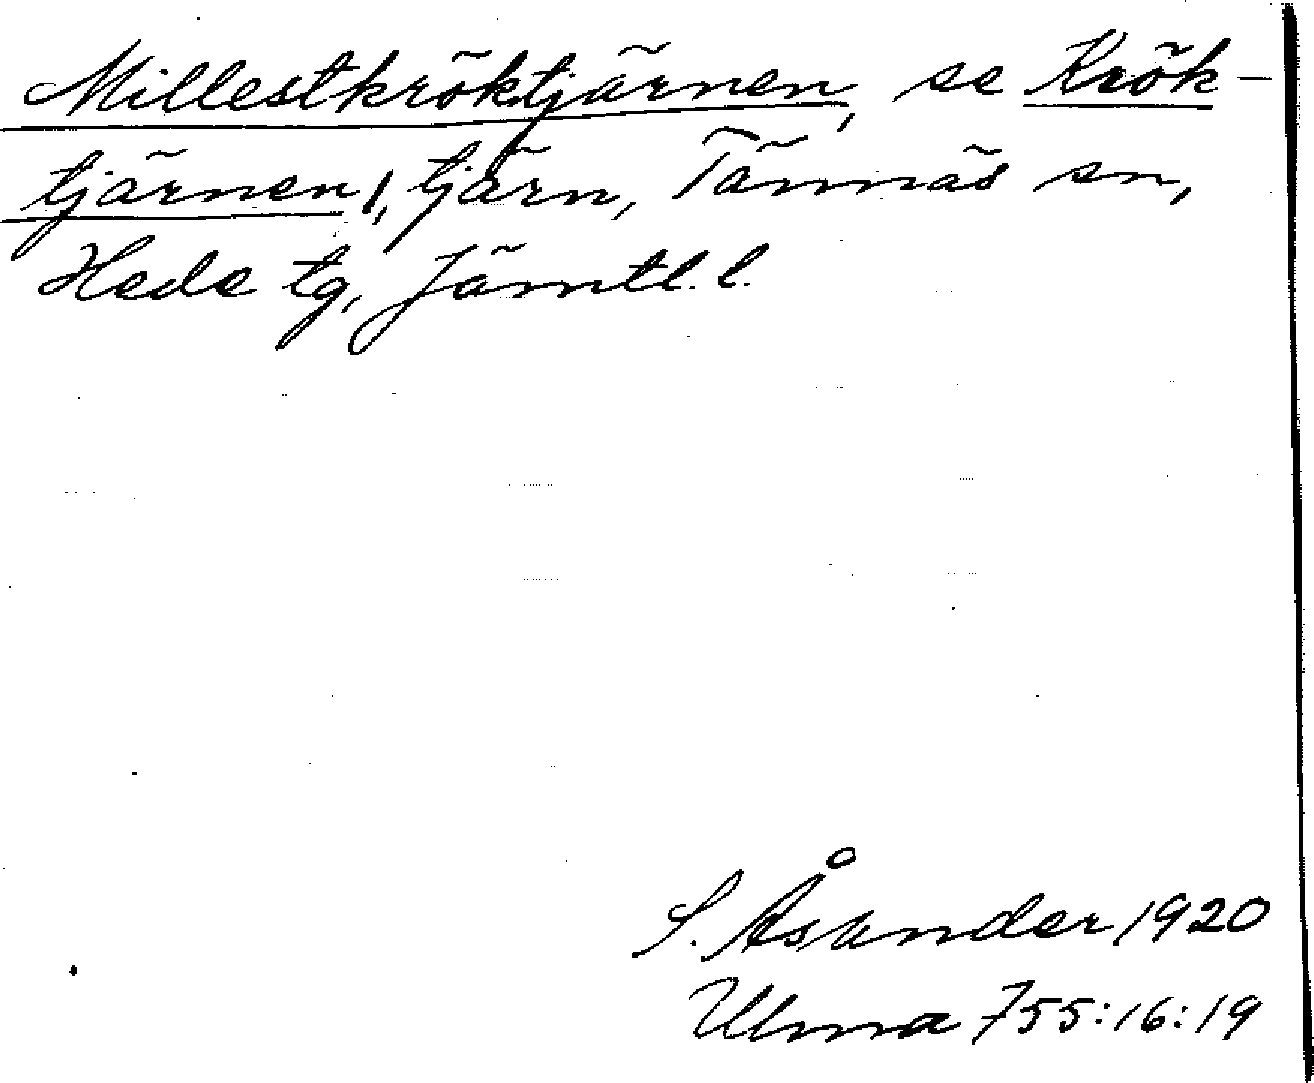 Millestkröktjärnen, se Krök-
tjärnen 1, tjärn, Tännäs sn,
Hede tg, Jämtl. l.
S. Åsander 1920
Ulma 755:16:19